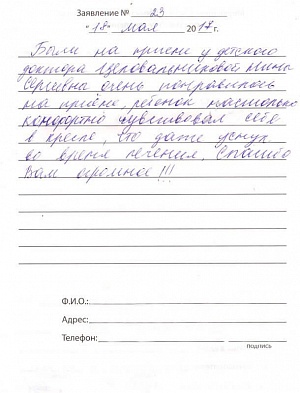 Заявление № 23
"18" мая 2017 г.
Были на приеме у детского
доктора Целовальниковой Нины
Сергеевны очень понравилось
на приёме, ребенок настолько
комфортно чувствовал себя
в кресле, что даже уснул
во время лечения. Спасибо
Вам огромное!!!
Ф.И.О.:
Адрес:
Телефон:
подпись